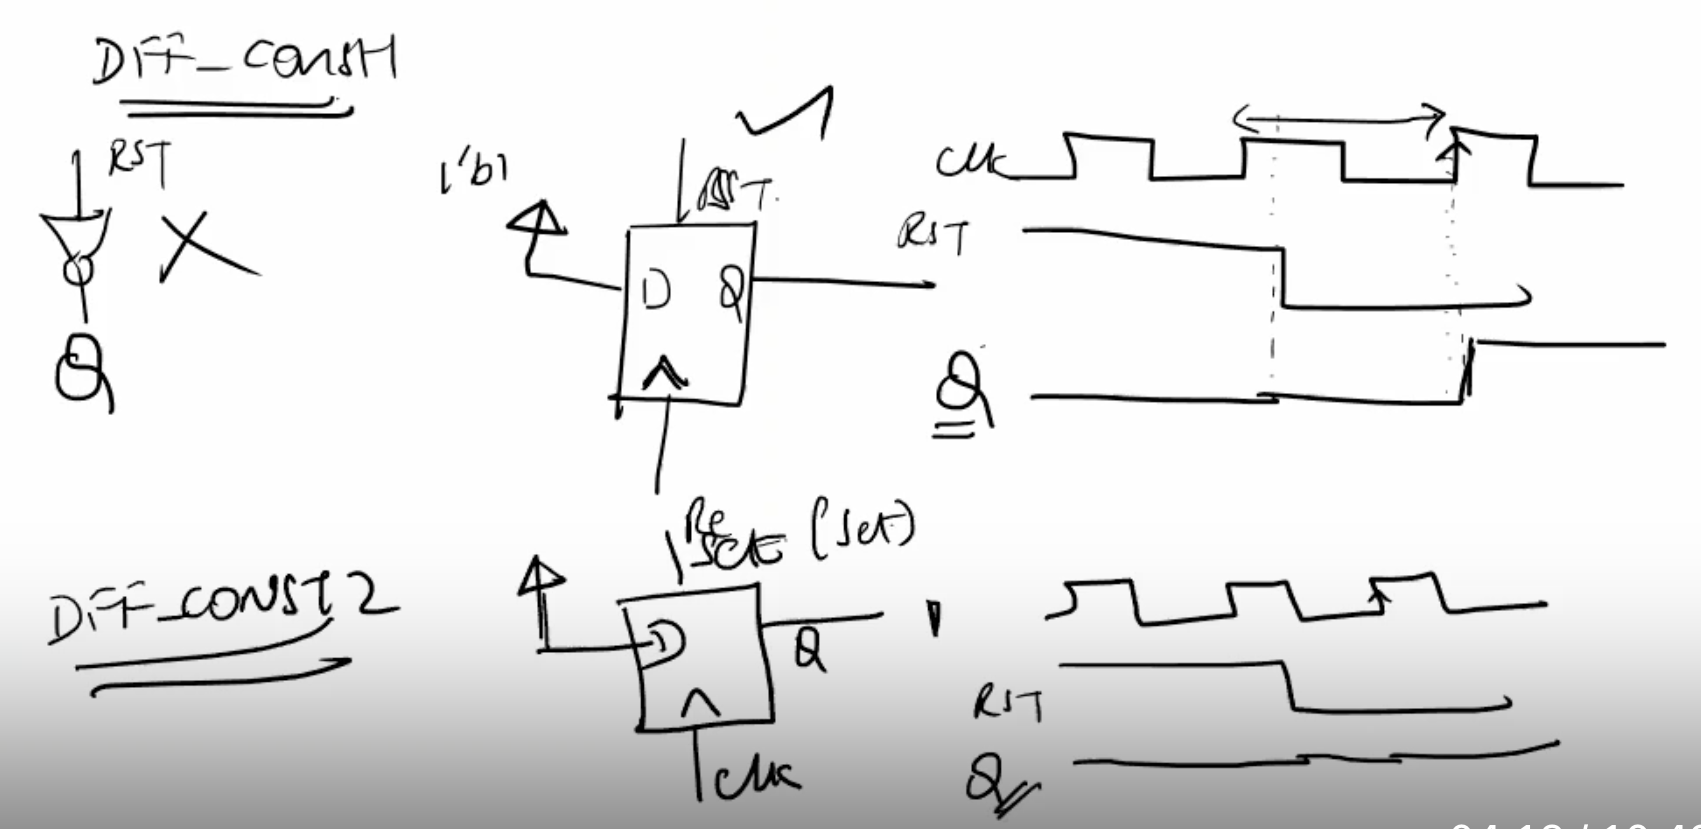 DFF_CONST1
RST
Q
1'b1
RST
D Q
CLK
RST
Q
DFF_CONST2
Reset (Set)
D
Q
CLK
RST
Q